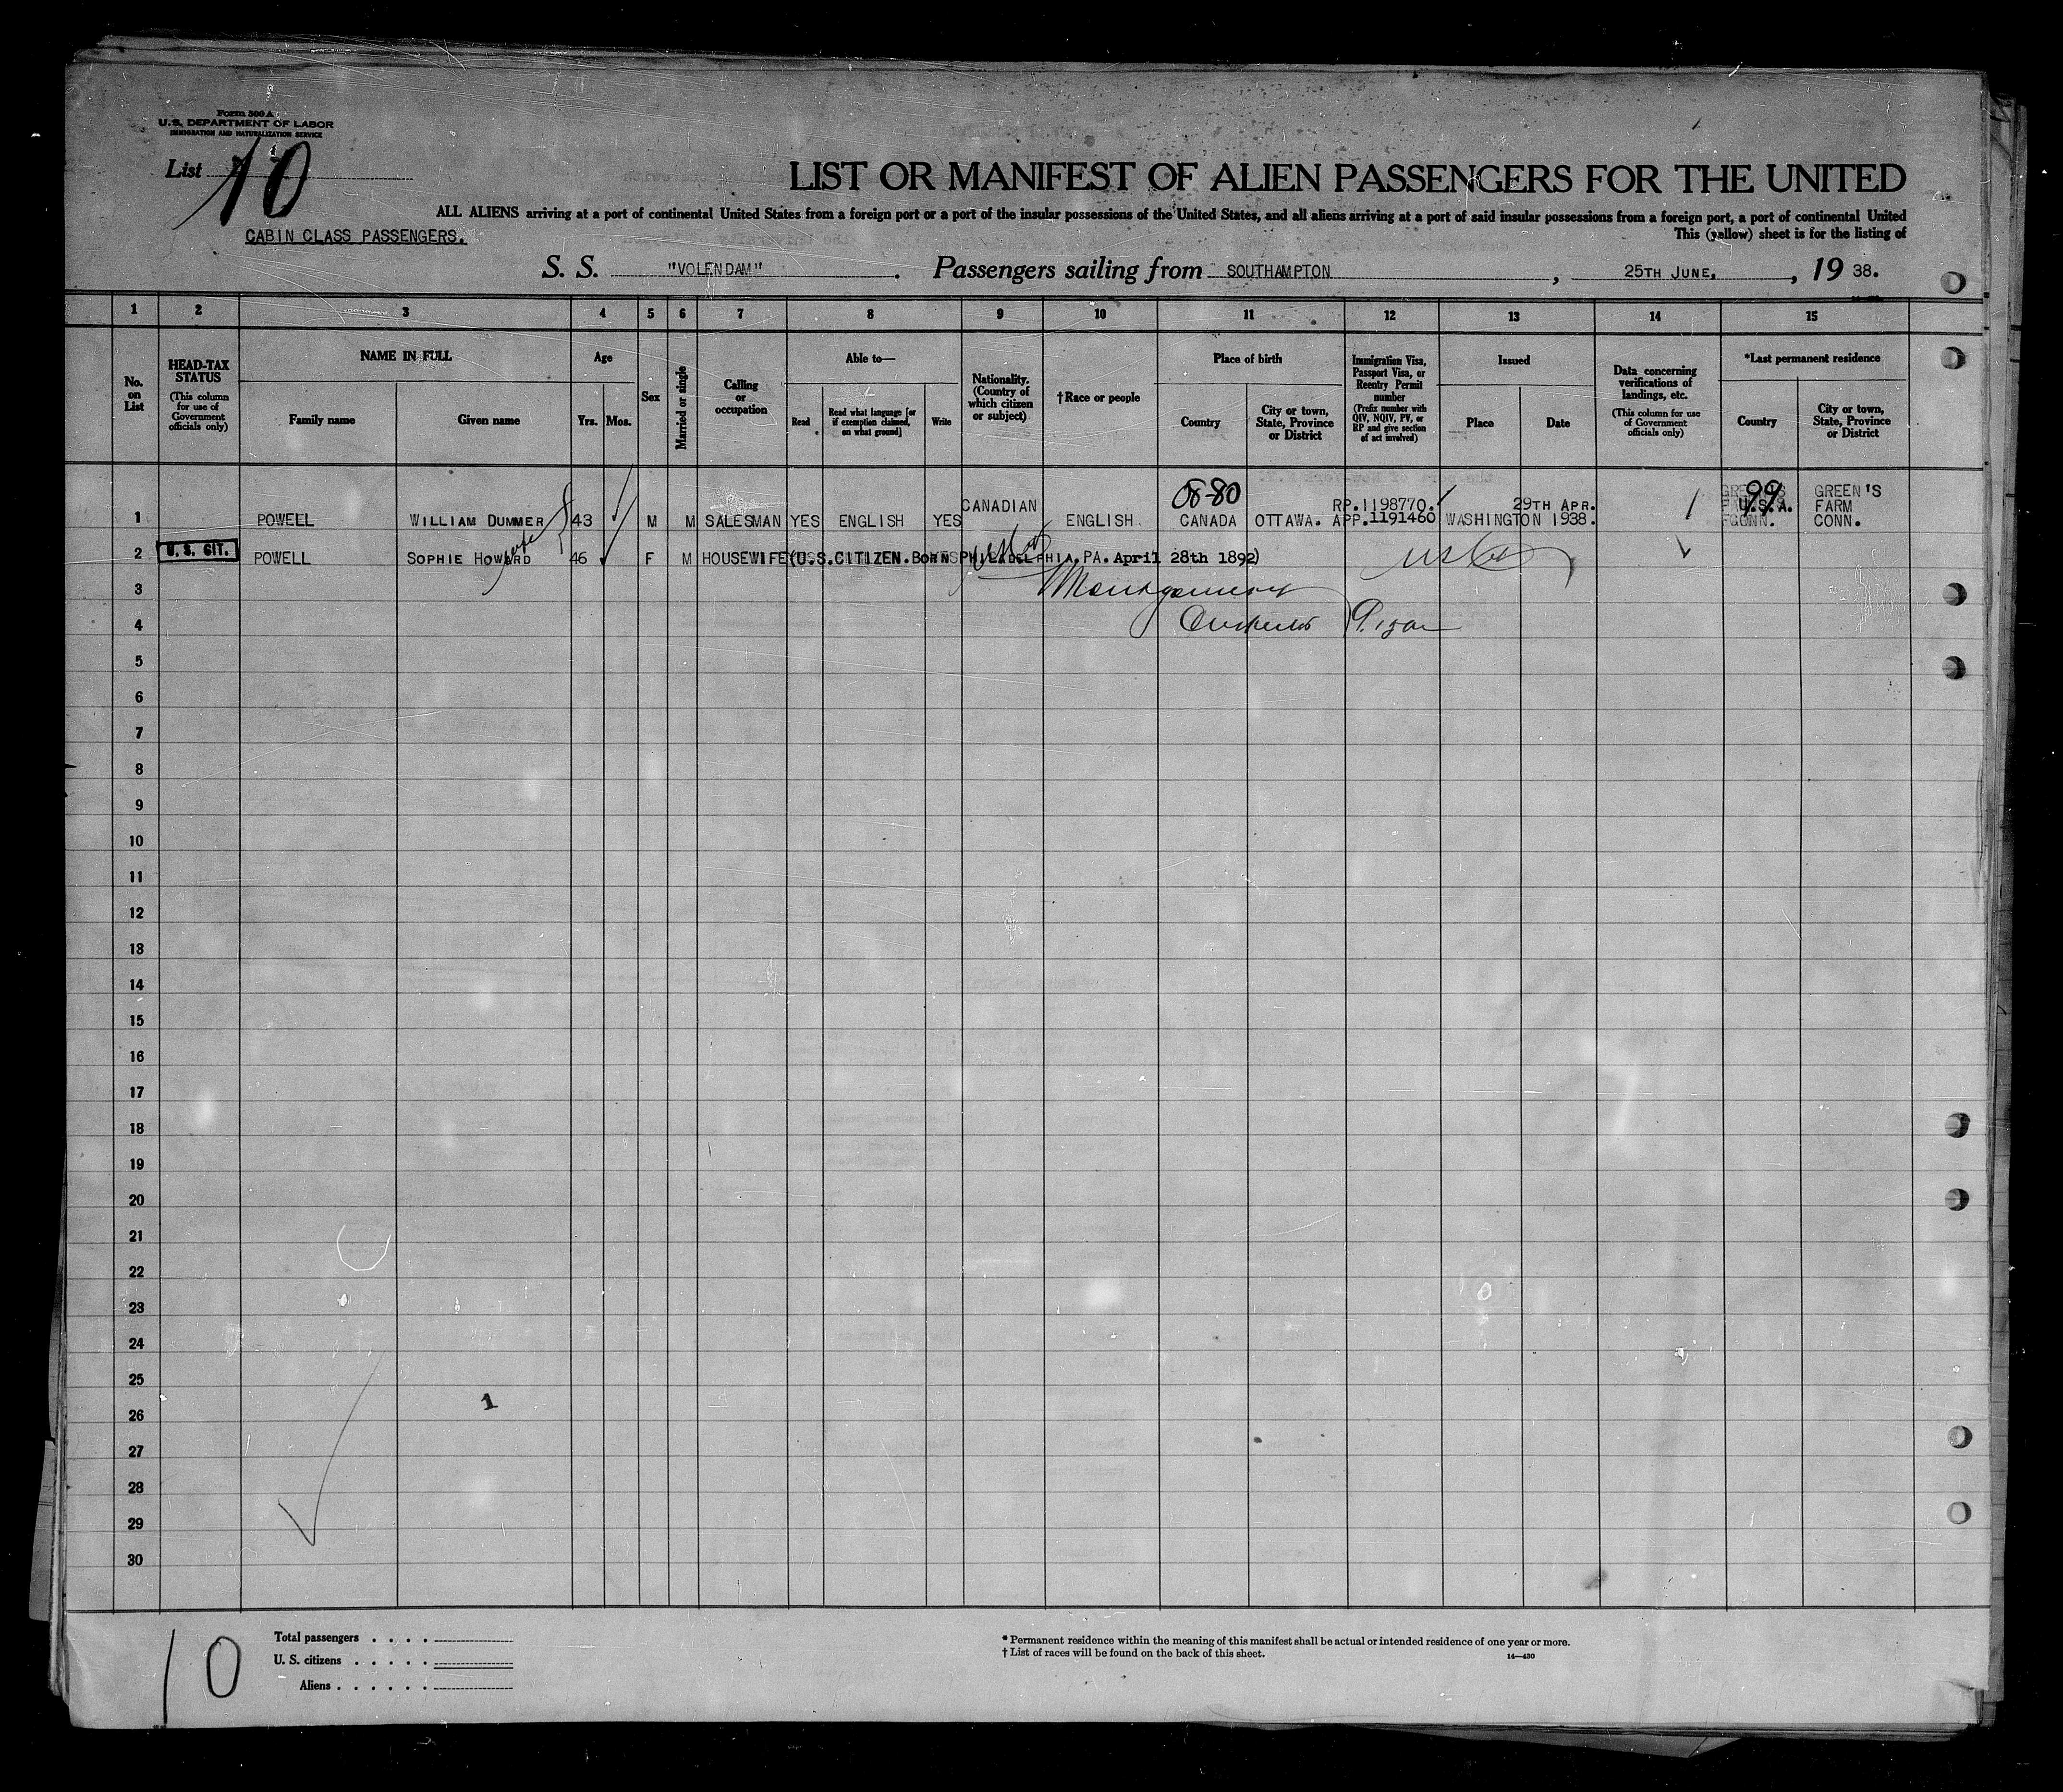 Form 500 A
U. S. DEPARTMENT OF LABOR
IMMIGRATION AND NATURALIZATION SERVICE
List 10
LIST OR MANIFEST OF ALIEN PASSENGERS FOR THE UNITED
ALL ALIENS arriving at a port of continental United States from a foreign port or a port of the insular possessions of the United States, and all aliens arriving at a port of said insular possessions from a foreign port, a port of continental United
CABIN CLASS PASSENGERS.
This (yellow) sheet is for the listing of
S. S. "VOLENDAM" . Passengers sailing from SOUTHAMPTON , 25TH JUNE. , 19 38.
1 2 3 4 5 6 7 8 9 10 11 12 13 14 15
No. on List
HEAD-TAX STATUS
(This column for use of Government officials only)
NAME IN FULL
Family name
Given name
Age
Yrs. Mos.
Sex
Married or single
Calling or occupation
Able to—
Read
Read what language [or if exemption claimed, on what ground]
Write
Nationality. (Country of which citizen or subject)
†Race or people
Place of birth
Country
City or town, State, Province or District
Immigration Visa, Passport Visa, or Reentry Permit number
(Prefix number with QIV, NQIV, PV, or RP and give section of act involved)
Issued
Place
Date
Data concerning verifications of landings, etc.
(This column for use of Government officials only)
*Last permanent residence
Country
City or town, State, Province or District
08-80
99
1 POWELL WILLIAM DUMMER 43 M M SALESMAN YES ENGLISH YES CANADIAN ENGLISH CANADA OTTAWA. RP.1198770. APP.1191460 WASHINGTON 29TH APR. 1938. U.S.A. GREEN'S FARM CONN.
wife
2 U. S. CIT. POWELL SOPHIE HOWARD 46 F M HOUSEWIFE (U.S.CITIZEN. BORN PHILADELPHIA, PA. April 28th 1892)
3 Montgomery
4
5
6
7
8
9
10
11
12
13
14
15
16
17
18
19
20
21
22
23
24
25
26 1
27
28
29
30
10
Total passengers . . . .
U. S. citizens . . . . .
Aliens . . . . . .
* Permanent residence within the meaning of this manifest shall be actual or intended residence of one year or more.
† List of races will be found on the back of this sheet.
14—430